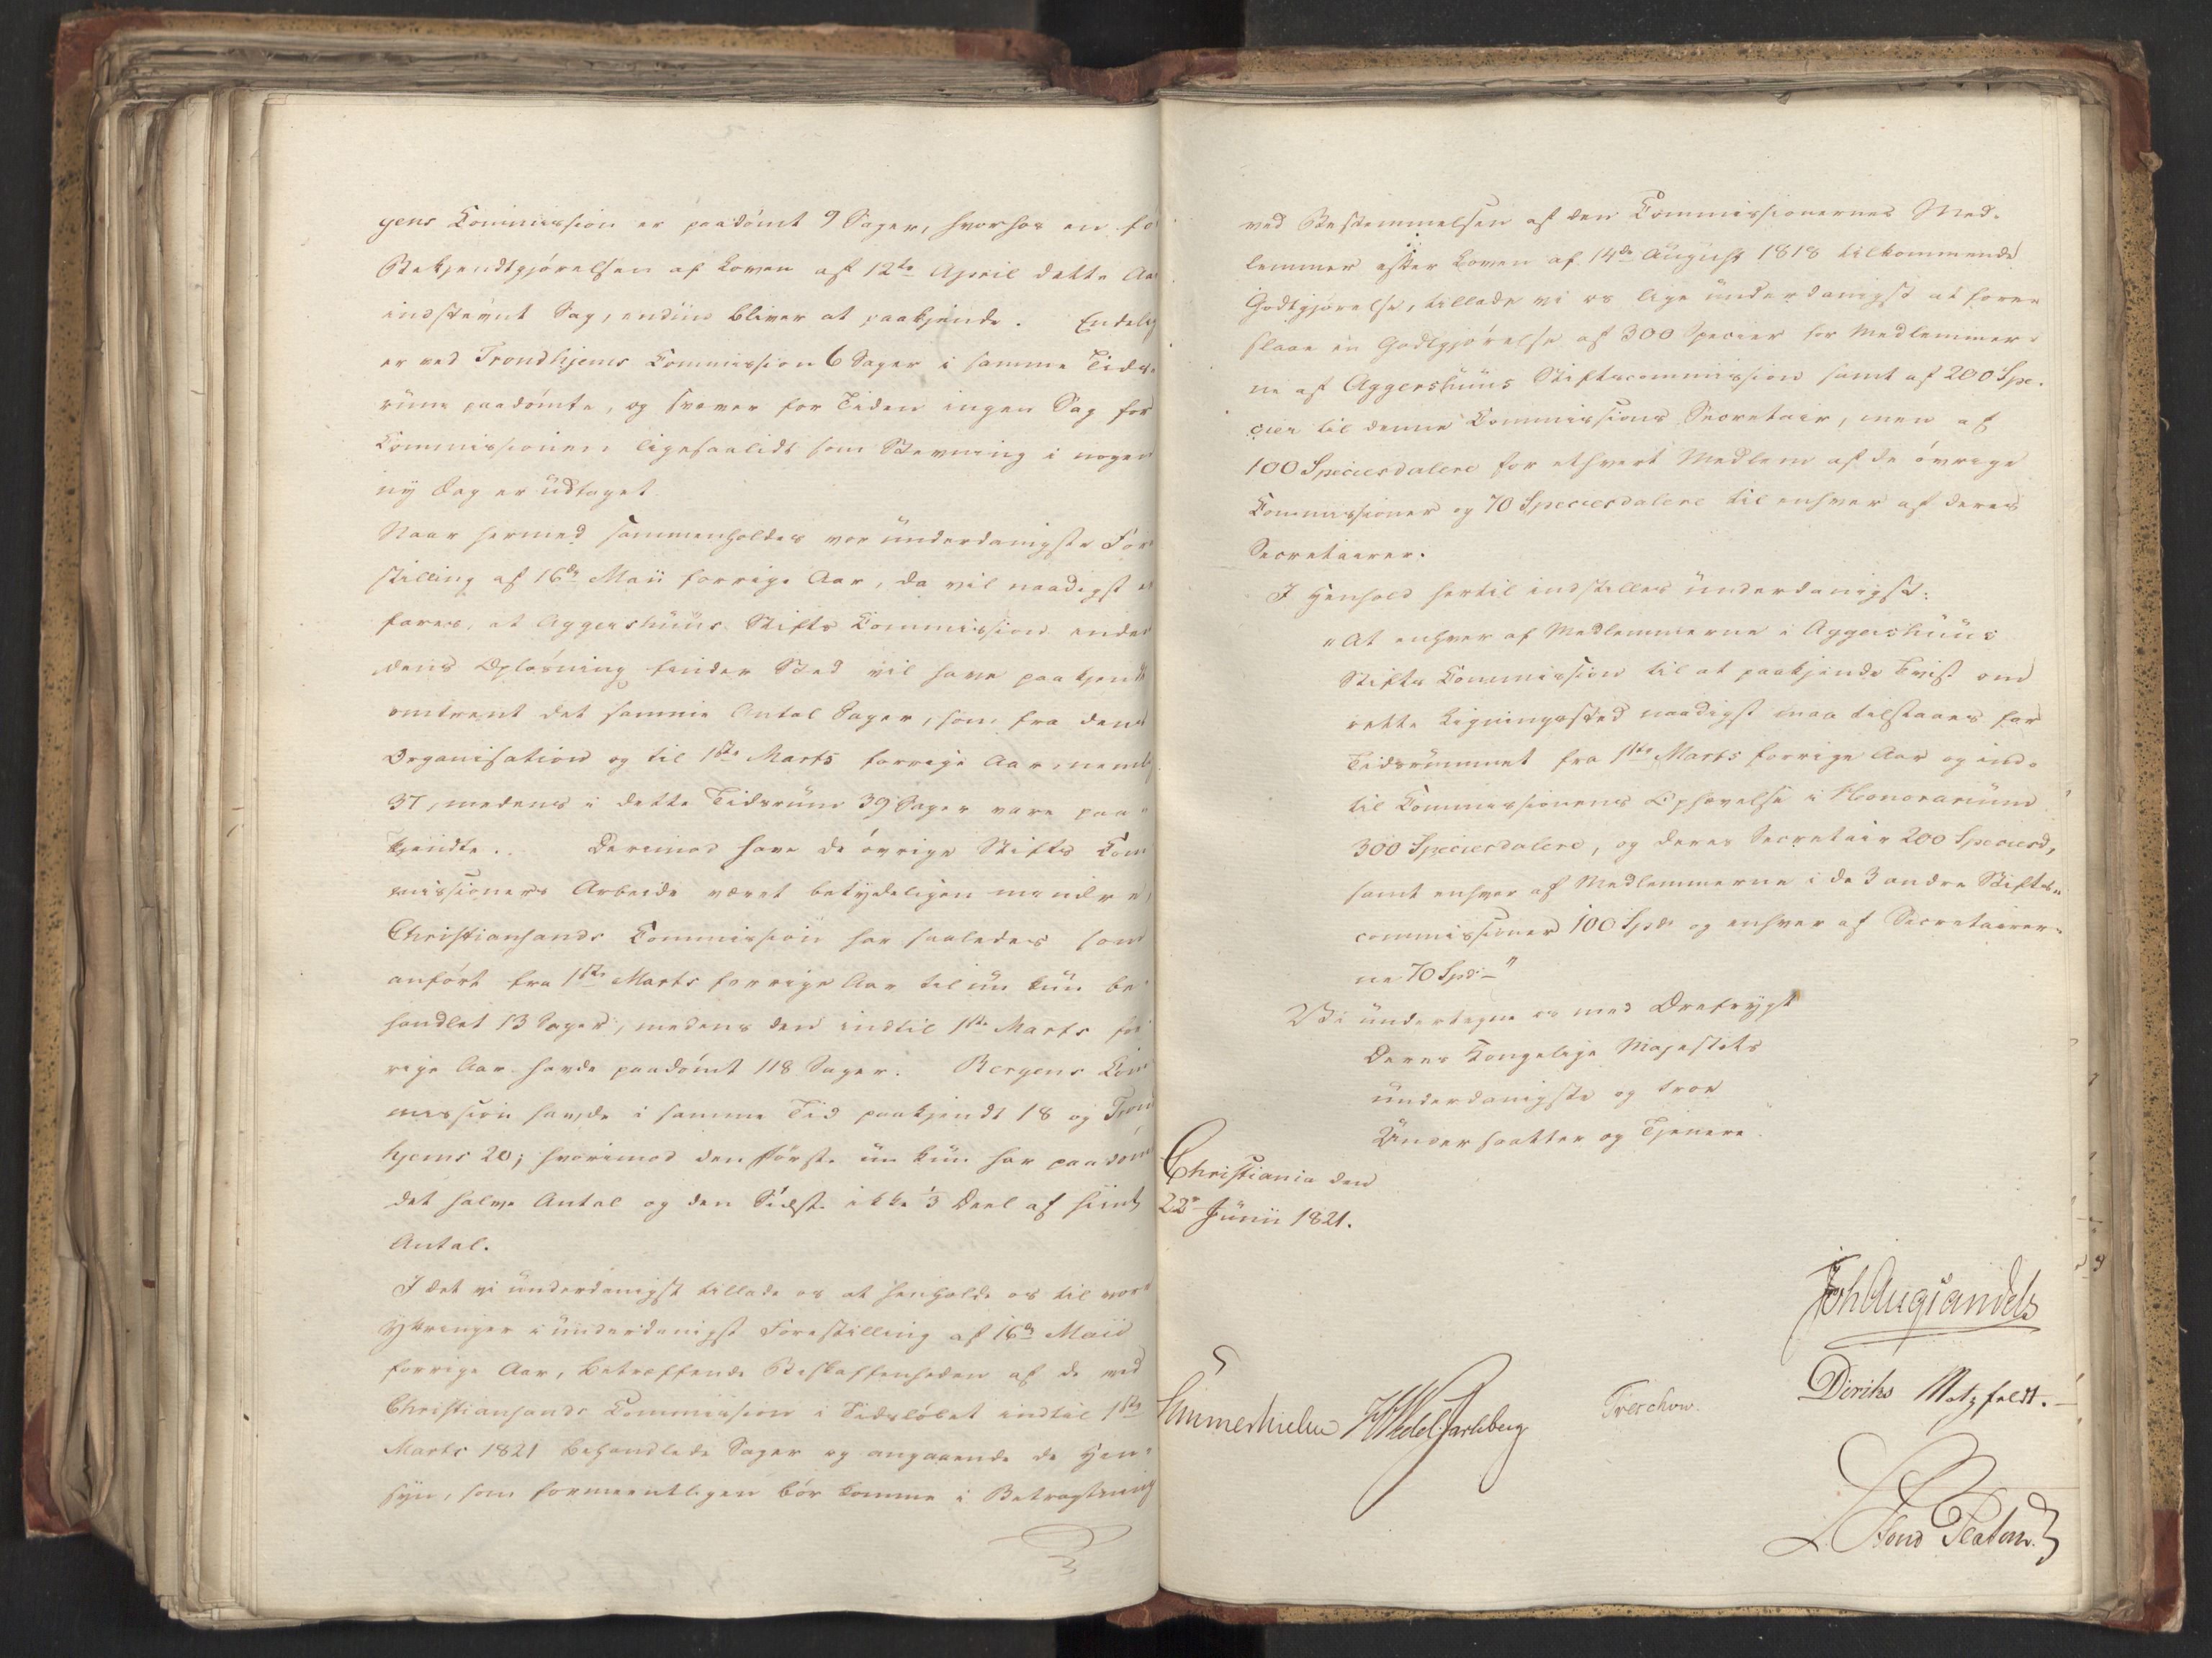 gens Commission er paadömt 9 Sager, hvorhos en fo
Bekjendtgjörelsen af Loven af 12te April dette Aa
indstevnt Sag, endnu bliver at paakjende. Endelig
er ved Trondhjems Commission 6 Sager i samme Tids-
rum paadömte, og svæver for Tiden ingen Sag for
Commissionen ligesaalidt som Stevning i nogen
ny Sag er udtaget.
Naar hermed sammenholdes vor underdanigste Fore
stilling af 16de Maii forrige Aar, da vil naadigst er
fares, at Aggershuus Stifts Commission inden
dens Oplösning finder Sted vil have paakjendt
omtrent det samme Antal Sager, som fra dens
Organisation og til 1ste Marts forrige Aar nemlig
37, medens i dette Tidsrum 39 Sager vare paa-
kjendte. Derimod have de övrige Stifts Com
missioners Arbeide været betydeligen mindre,
Christiansands Commission har saaledes som
anfört fra 1ste Marts forrige Aar til nu kun be-
handlet 13 Sager, medens den indtil 1ste Marts for
rige Aar havde paadömt 118 Sager. Bergens Com
mission havde i samme Tid paakjendt 18 og Trond
hjems 20; hvorimod den förste nu kun har paadömt
det halve Antal og den Sidste ikke 1/3 Deel af hiint
Antal.
I det vi underdanigst tillade os at henholde os til vore
Yttringer i underdanigst Forestilling af 16de Maii
forrige Aar, betræffende Beskaffenheden af de ved
Christiansands Commission i Tidslöbet indtil 1ste
Marts 1821 behandlede Sager og angaaende de Hen-
syn, som formeentligen bör komme i Betragtning
ved Bestemmelsen af den Commissionernes Med-
lemmer efter Loven af 14de August 1818 tilkommende
Godtgjörelse, tillade vi os lige underdanigst at fore-
slaae en Godtgjörelse af 300 Specier for Medlemmer-
ne af Aggershuus Stiftscommission samt af 200 Spe-
cier til denne Commissions Secretair, men af
100 Speciesdalere for ethvert Medlem af de övrige
Commissioner og 70 Speciesdalere til enhver af deres
Secretairer.
I Henhold hertil indstilles underdanigst:
"At enhver af Medlemmerne i Aggershuus
Stifts Commission til at paakjende Tvist om
rette Ligningssted naadigst maa tilstaaes for
Tidsrummet fra 1ste Marts forrige Aar og ind-
til Commissionens Ophævelse i Honorarium
300 Speciesdalere, og deres Secretair 200 Speciesd,
samt enhver af Medlemmerne i de 3 andre Stifts-
commissioner 100 Spd. og enhver af Secretairer-
ne 70 Spd. -"
Vi undertegne os med Ærefrygt
Deres Kongelige Majestæts
underdanigste og troe
Undersaatter og Tjenere
Christiania den
22de Junii 1821.
Joh Aug Sandels
Diriks Motzfeldt.
Sommerhielm HWedel Jarlsberg Treschow.
Fond Platou